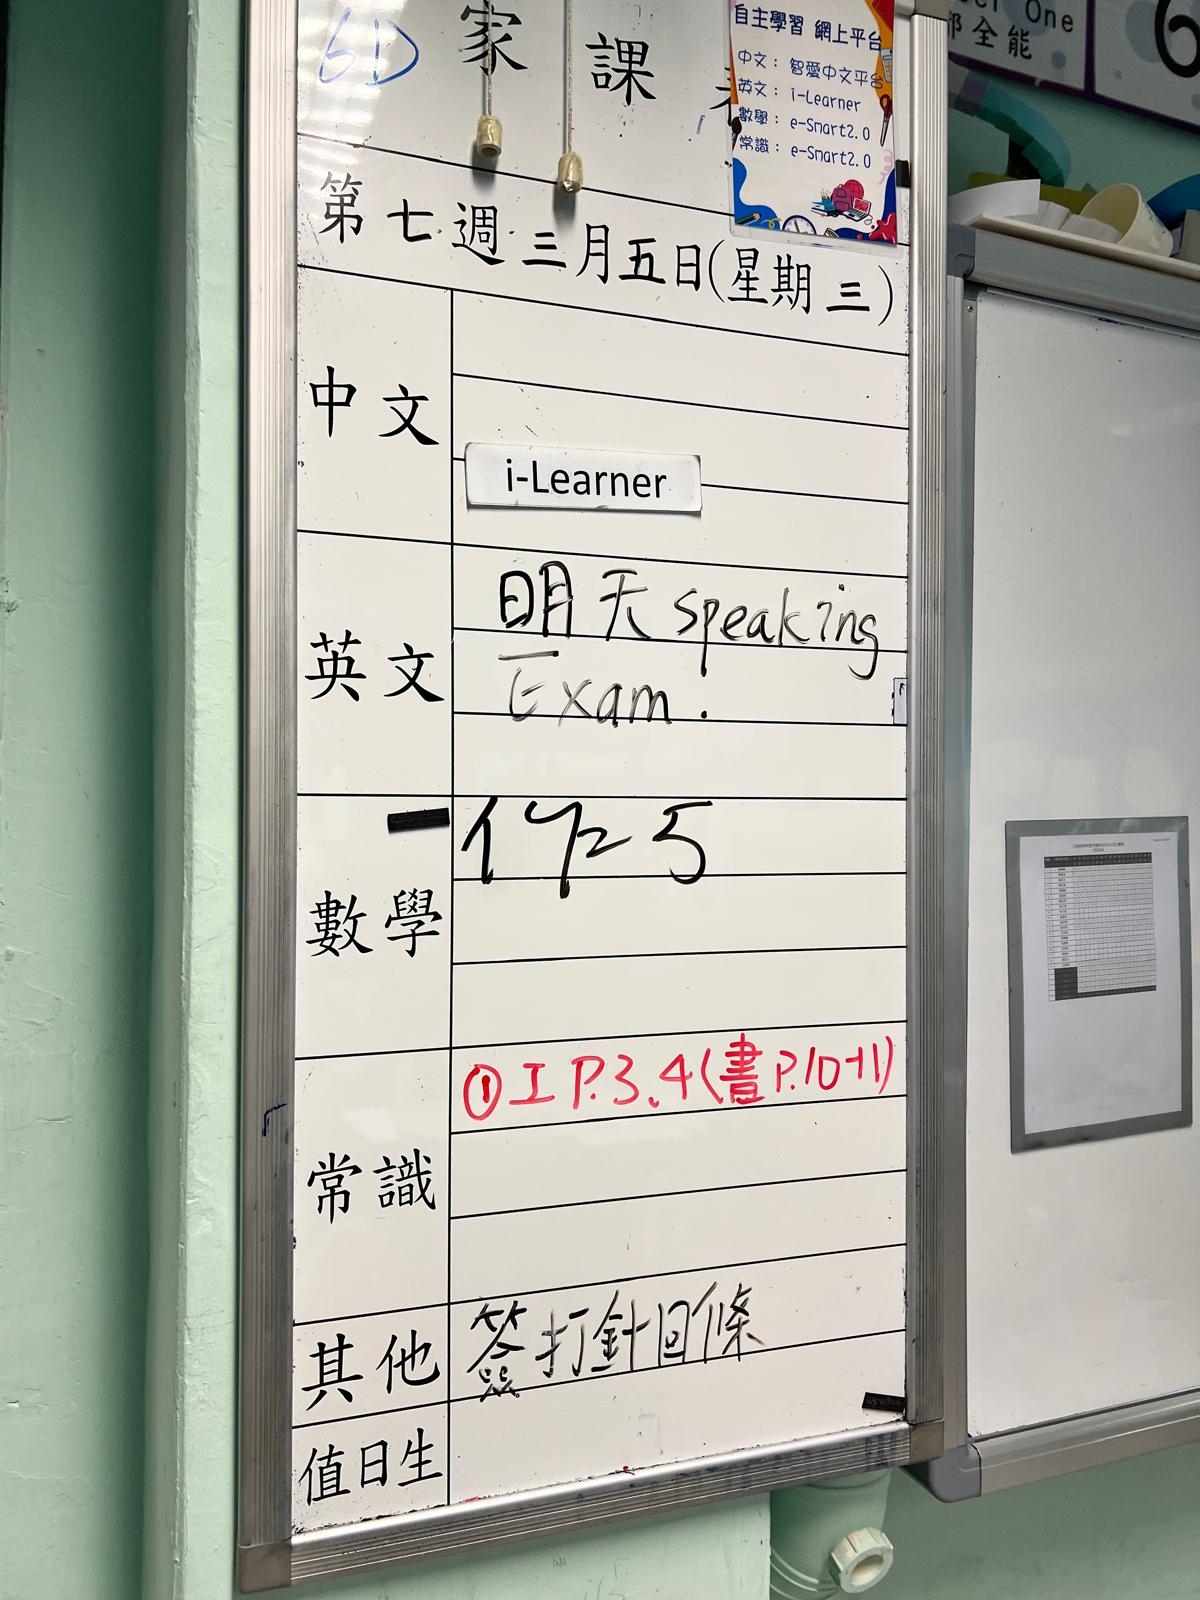 6D 家課
自主學習 網上平台
中文： 智愛中文平台
英文： i-Learner
數學： e-Smart2.0
常識： e-Smart2.0
One
全能
6
第七週三月五日(星期三)
中文
i-Learner
英文
明天 speaking
Exam.
數學
5
常識
①工 P.3、4(書P.10-11)
其他
簽打針回條
值日生